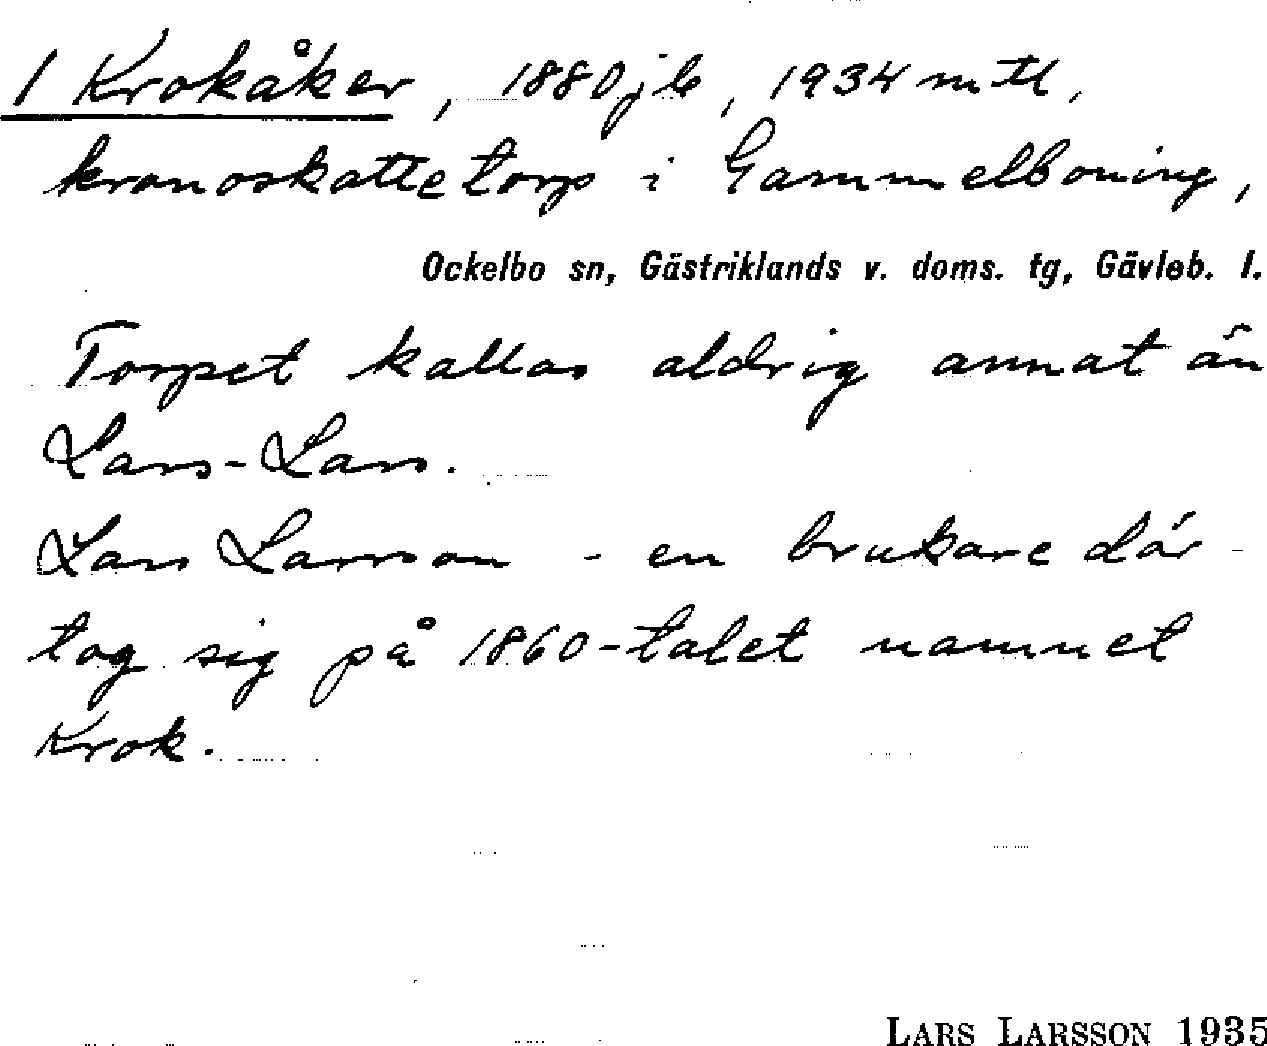 1 Krokåker, 1880 jb, 1934 mtl,
kronoskattetorp i Gammelboning,
Ockelbo sn, Gästriklands v. doms. tg, Gävleb. l.
Torpet kallas aldrig annat än
Lars-Lars.
Lars Larsson - en brukare där -
tog sig på 1860-talet namnet
Krok.
LARS LARSSON 1935